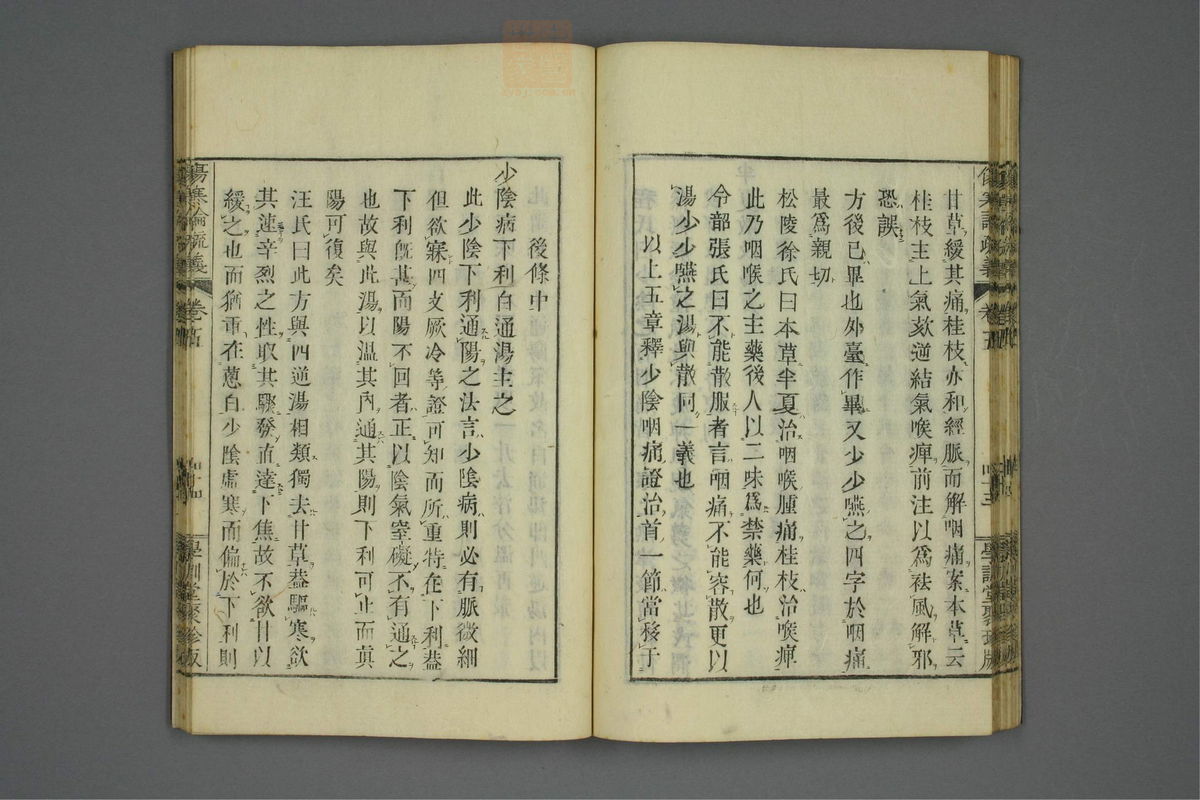 甘草緩其痛桂枝亦和經脈而解咽痛案本草云
桂枝主上氣欬逆結氣喉痺前注以爲祛風解邪
恐誤
方後已畢也外臺作畢又少少嚥之四字於咽痛
最爲親切
松陵徐氏曰本草半夏治咽喉腫痛桂枝治喉痺
此乃咽喉之主藥後人以二味爲禁藥何也
令韶張氏曰不能散服者言咽痛不能容散更以
湯少少嚥之湯與散同一義也
以上五章釋少陰咽痛證治首一節當移于
後條中
少陰病下利白通湯主之
此少陰下利通陽之法言少陰病則必有脈微細
但欲寐四支厥冷等證可知而所重特在下利葢
下利旣甚而陽不回者正以陰氣窒礙不有通之
也故與此湯以溫其內通其陽則下利可止而眞
陽可復矣
汪氏曰此方與四逆湯相類獨去甘草葢驅寒欲
其速辛烈之性取其驟發直達下焦故不欲甘以
緩之也而猶重在蔥白少陰虛寒而偏於下利則
傷寒論疏義
卷五
四十三
學訓堂聚珍版